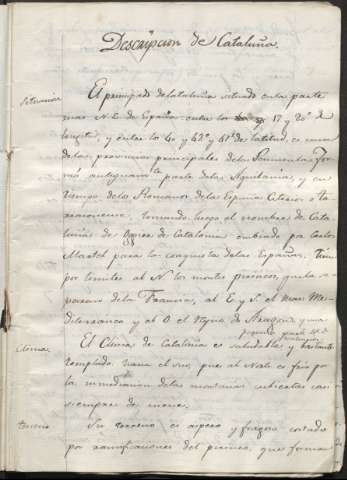 Descripcion de Cataluña.
Situacion
El principado de Cataluña situado en la parte
mas N.E. de España entre los 17 y 20° de
longitud, y entre los 40 y 42° y 51' de latitud, es una
de las provincias principales de la Peninsula. For
mó antiguamte parte de la Aquitania, y en
tiempo de los Romanos de la España Citerior o Ta
rraconense, tomando luego el nombre de Cata
luña de de Catalonia embiado por Carlos
Martel para la conquista de las Españas. Tiene
por limites al N. los montes pirineos, que la se
paran de la Francia, al E. y S. el mar Me
diterraneo y al O. el Reyno de Aragon y una
pequeña parte del de
Valencia
Clima.
El Clima de Cataluña es saludable y bastante
templado, hacia el sur, pues al Norte es frio por
la inmediacion de las montañas cubiertas casi
siempre de nieve.
terreno
Su terreno es aspero y fragoso cortado
por ramificaciones del pirineo, que forman